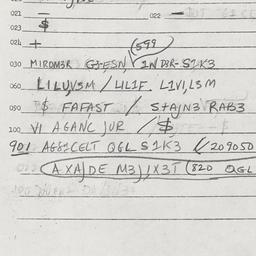 021 — 022 —
023 $
024 +
(599
030 MIROM3R G+ESN, 1NDSR-S1K3
060 LILUVSM / LIL1F. L1V1,LSM
090 $ FAFAST / S+AJN3 RAB3
100 VI AGANC JUR / $
901 AG81CELT QGL S1K3 209050
AXAJDE M3JJX3T (820 QGL